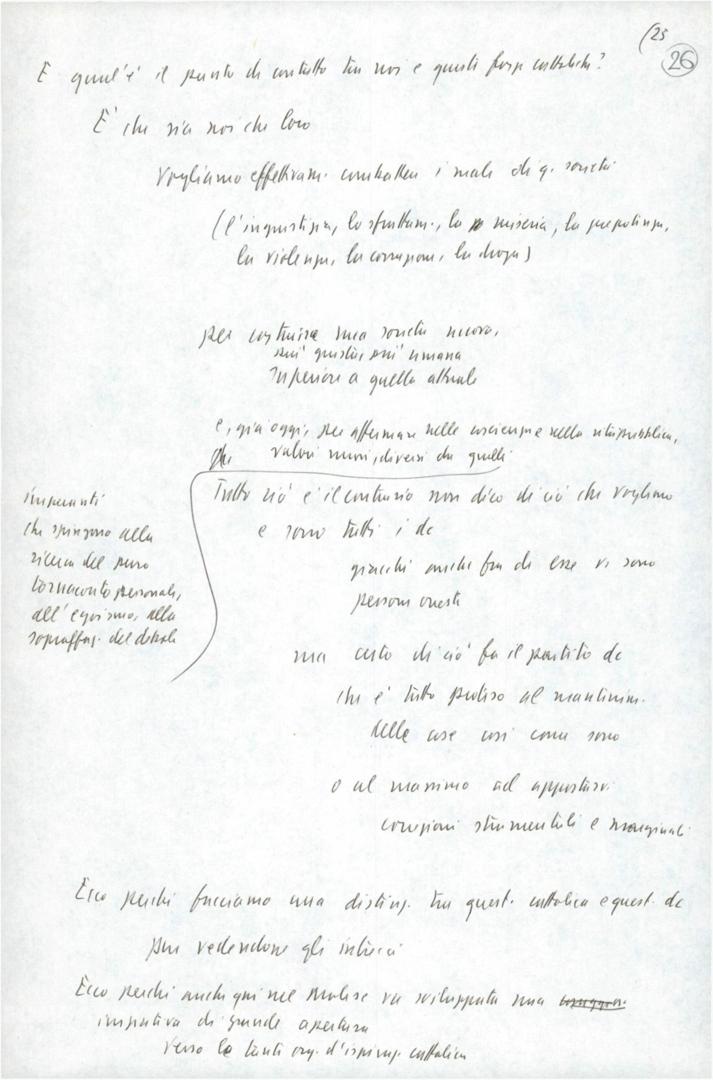 (25
26
E qual'è il punto di contatto tra noi e queste forze cattoliche?
E' che sia noi che loro
vogliamo effettivam. combattere i mali di q. società
(l'ingiustizia, lo sfruttam., la miseria, la prepotenza,
la violenza, la corruzione, la droga)
per costruire una società nuova,
più giusta, più umana
superiore a quella attuale
e, già oggi, per affermare nelle coscienze e nella vita pubblica,
valori nuovi, diversi da quelli
imperanti
che spingono alla
ricerca del puro
tornaconto personale,
all'egoismo, alla
sopraffaz. del debole
Tutto ciò è il contrario non dico di ciò che vogliono
e sono tutti i dc
giacché anche fra di esse vi sono
persone oneste
ma certo di ciò fa il partito dc
che è tutto proteso al mantenim.
delle cose così come sono
o al massimo ad apportarvi
correzioni strumentali e marginali
Ecco perché facciamo una distinz. tra quest. cattolica e quest. dc
pur vedendone gli intrecci
Ecco perché anche qui nel Molise va sviluppata una
iniziativa di grande apertura
verso le tanti org. d'ispiraz. cattolica